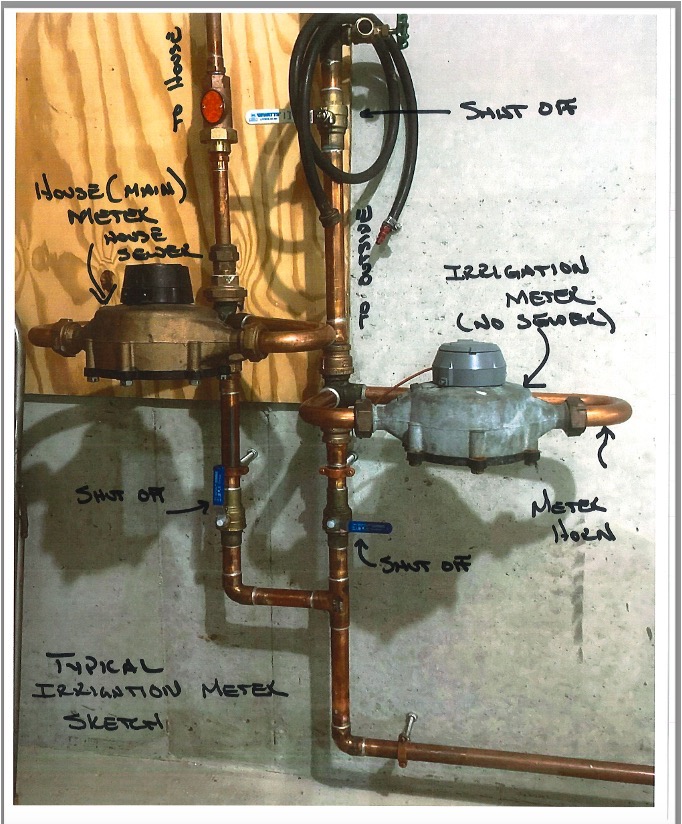 TO HOUSE
WATTS
SHUT OFF
HOUSE (MAIN)
METER
HOUSE
SEWER
TO OUTSIDE
IRRIGATION
METER
(NO SEWER)
SHUT OFF
METER
HORN
SHUT OFF
TYPICAL
IRRIGATION METER
SKETCH